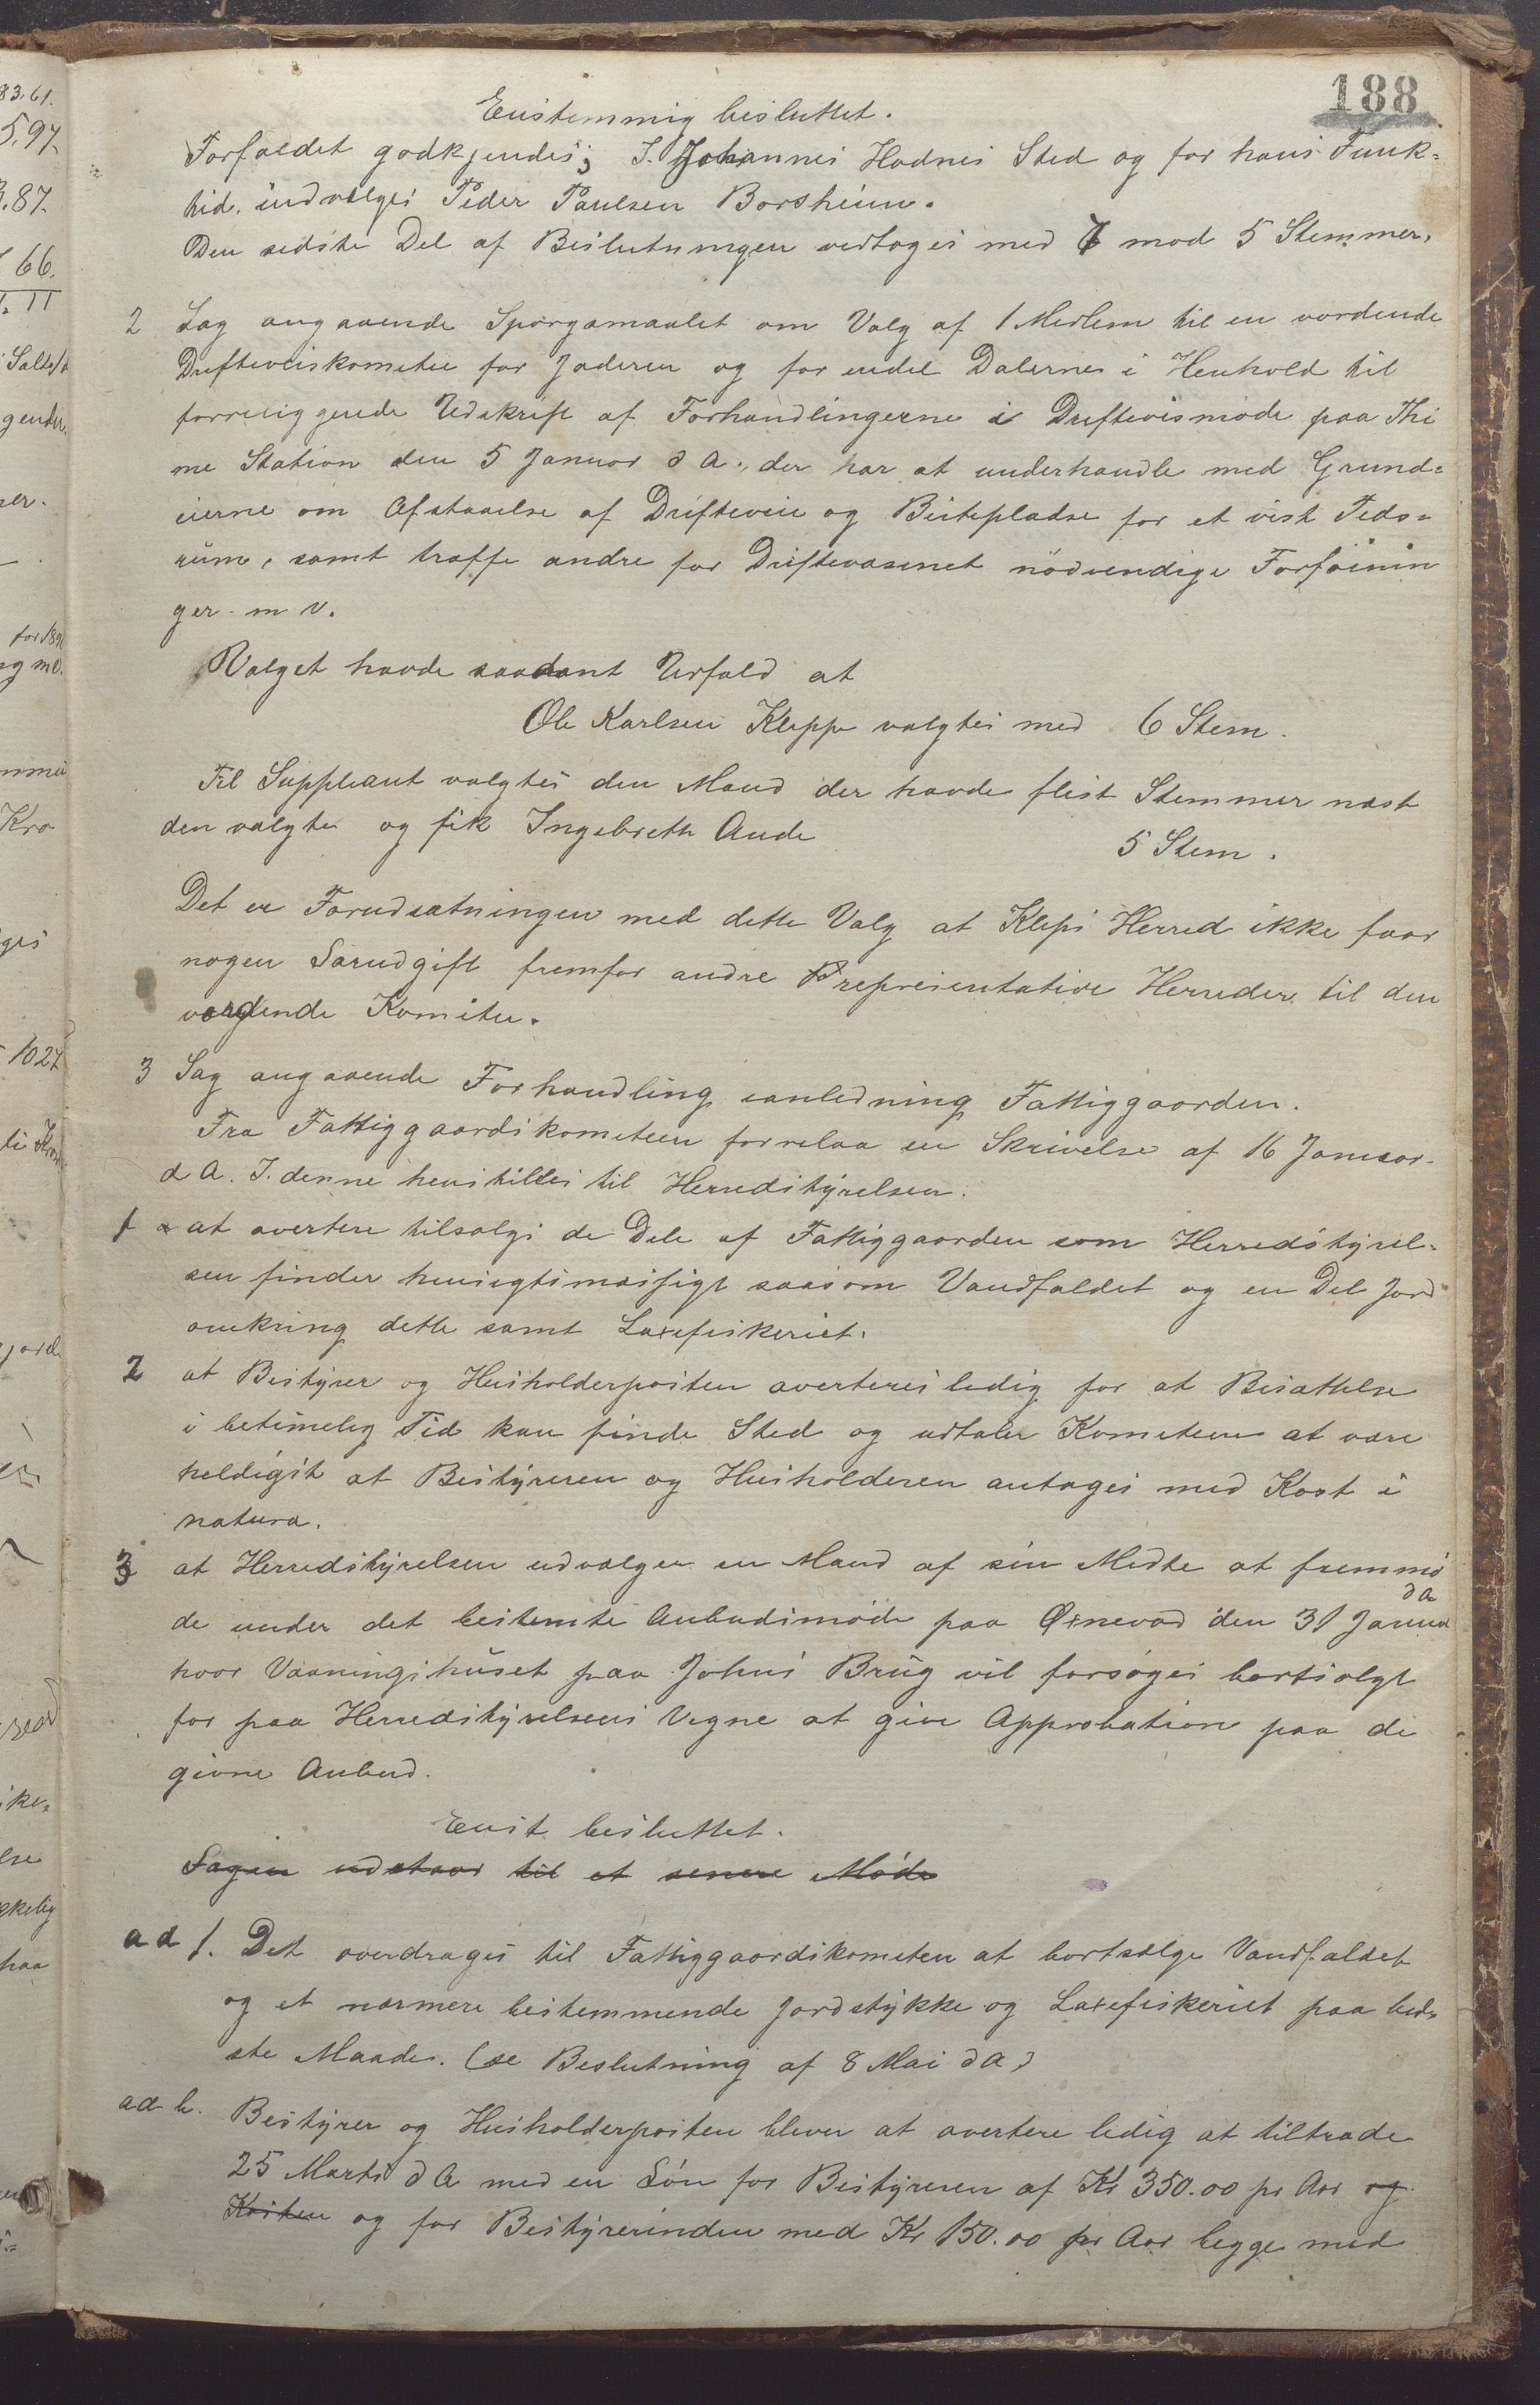 188
Enstemmig besluttet.
Forfaldet godkjendes; I. Johannes Hodnes Sted og for hans Funk-
tid. indvælges Peder Paulsen Borsheim.
Den sidste Del af Beslutningen vedtoges med 7 mod 5 Stemmer.
2 Sag angaaende Spörgsmaalet om Valg af 1 Medlem til en vordende
Drifteveiskomitee for Jæderen og for endel Dalerne i Henhold til
foreliggende Udskrift af Forhandlingerne i Drifteveismöde paa Thi
me Station den 5 Januar d A., der har at underhandle med Grund-
eierne om Afstaaelse af Drifteveie og Beitepladse for et vist Tids-
rum, samt træffe andre for Driftevæsenet nödvendige Forföinin
ger m v.
Valget havde saadant Udfald at
Ole Karlsen Kleppe valgtes med 6 Stem.
Til Suppleant valgtes den Mand der havde flest Stemmer næst
den valgte og fik Ingebreth Aude
5 Stem.
Det er Forudsætningen med dette Valg at Kleps Herred ikke faar
nogen Særudgift fremfor andre representative Herreder til den
vordende Komitee.
3 Sag angaaende Forhandling ianledning Fattiggaarden.
Fra Fattiggaardskometeen forrelaa en Skrivelse af 16 Januar
d A. I. denne henstilles til Herredstyrelsen.
1 at avertere tilsalgs de Dele af Fattiggaarden som Herredstyrel-
sen finder hensigtsmæsigt saasom Vandfaldet og en Del Jord
omkring dette samt Laxefiskeriet.
2 at Bestyrer og Husholderposten averteres ledig for at Besættelse
i betimelig Tid kan finde Sted og udtaler Kometeen at være
heldigst at Bestyreren og Husholderen antages med Kost i
natura.
3 at Herredstyrelsen udvælger en Mand af sin Midte at fremmö
d A
de under det bestemte Anbudsmöde paa Ørnevad den 31 Januar
hvor Vaaningshuset paa Johns Brug vil forsöges bortsolgt
for paa Herredstyrelsens Vegne at give Approbation paa de
givne Anbud.
Enst. besluttet.
Sagen udstaar til et senere Möde
ad 1. Det overdrages til Fattiggaardskometeen at bortsælge Vandfaldet
og et nærmere bestemmende Jordstykke og Laxefiskeriet paa bed-
ste Maade. (se Beslutning af 8 Mai d A)
ad b. Bestyrer og Husholderposten bliver at avertere ledig at tiltræde
25 Marts d A med en Lön for Bestyreren af Kr 350.00 pr Aar og
Kosten og for Bestyrerinden med Kr 150.00 pr Aar begge med